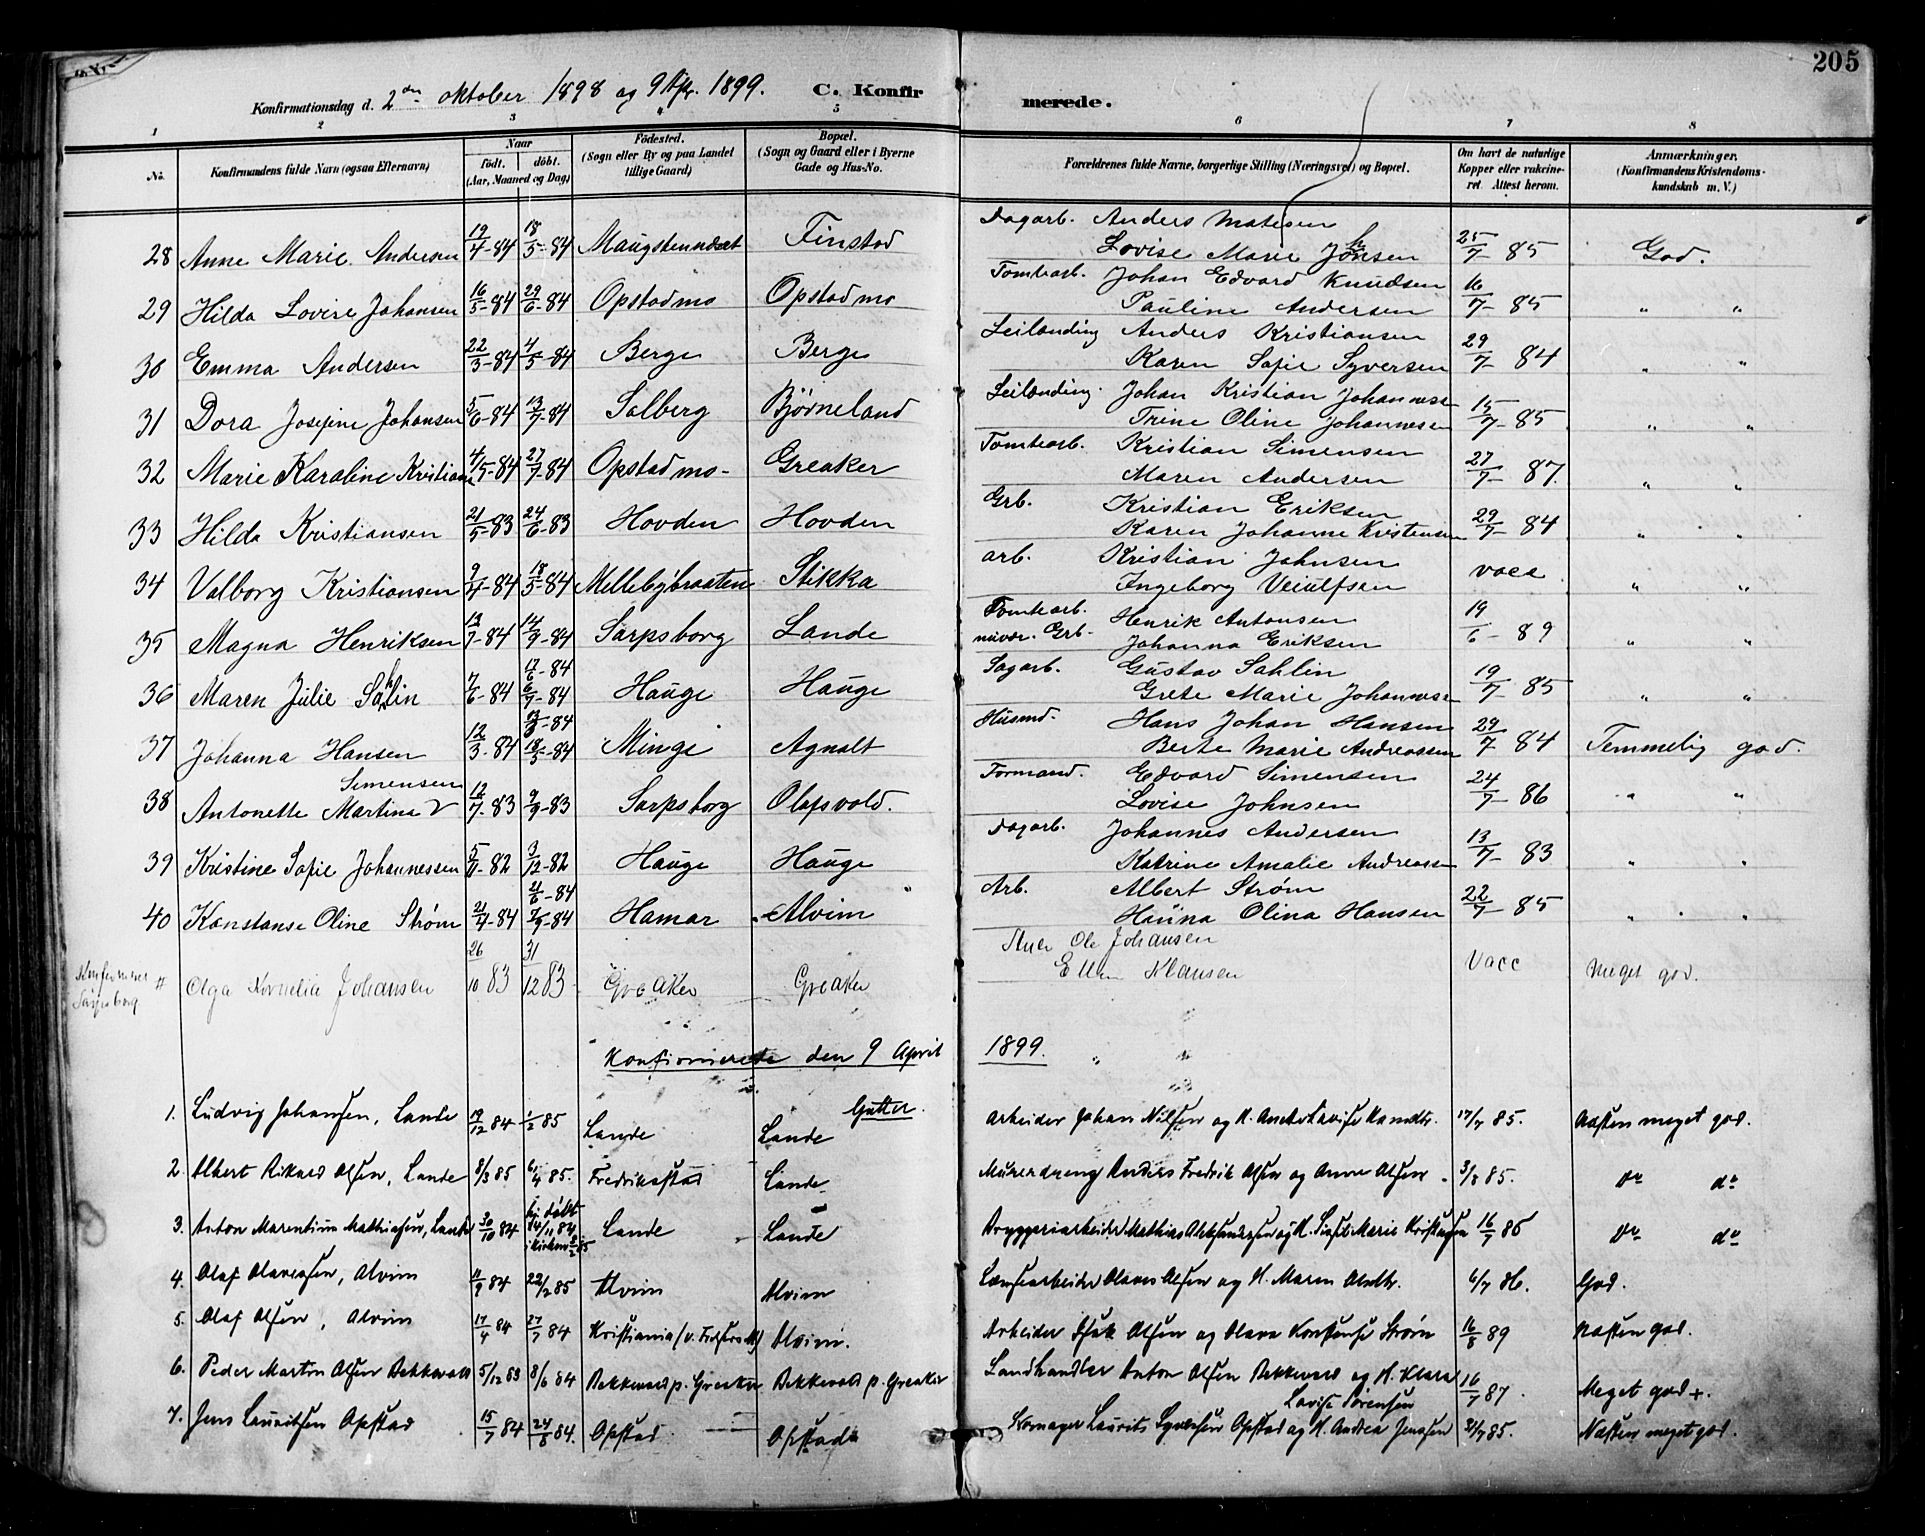 205
Konfirmationsdag d. 2den oktober 1898 og 9 Apr. 1899. C. Konfir merede.
1 2 3 4 5 6 7 8
No. Konfirmandens fulde Navn (ogsaa Efternavn) Naar födt. döbt. (Aar, Maaned og Dag) Födested. (Sogn eller By og paa Landet tillige Gaard) Bopæl. (Sogn og Gaard eller i Byerne Gade og Hus-No. Forældrenes fulde Navne, borgerlige Stilling (Næringsvei) og Bopæl. Om havt de naturlige Kopper eller vakcineret. Attest herom. Anmærkninger. (Konfirmandens Kristendomskundskab m. V.)
28 Anne Marie Andersen 19/4-84 18/5-84 Maugstennæset Finstad Dagarb. Anders Matesen
Lovise Marie Johnsen 25/7-85 God.
29 Hilda Lovise Johansen 16/5-84 29/6-84 Opstadmo Opstadmo Tomtearb. Johan Edvard Knudsen
Pauline Andersen 16/7-85 " "
30 Emma Andersen 22/3-84 4/5-84 Berge Berge Leilænding Anders Kristiansen
Karen Sofie Syversen 29/7-84 " "
31 Dora Josefine Johansen 5/6-84 13/7-84 Solberg Bjørneland Leilænding. Johan Kristian Johannesse
Trine Oline Johannesse 15/7-85 " "
32 Marie Karoline Kristianse 4/5-84 27/7-84 Opstadmo- Greaker Tomtearb. Kristian Simensen
Maren Andersen 27/7-87. " "
33 Hilda Kristiansen 21/5-83 24/6-83 Hovden Hovden Grb. Kristian Eriksen
Karen Johanne Kristensen 29/7-84 " "
34 Valborg Kristiansen 9/4-84 18/5-84 Mellebybraaten Stikka arb. Kristian Johnsen
Ingeborg Veiulfsen vacc " "
35 Magna Henriksen 13/7-84 14/9-84 Sarpsborg Lande Tomtearb. Henrik Antonsen
nuvær. Grb. Johanna Eriksen 19/6-89 " "
36 Maren Julie Sahlin 7/6-84 17/6-84 6/7-84 Hauge Hauge Sagarb. Gustav Sahlin
Grete Marie Johannesse 19/7-85 " "
37 Johanna Hansen 12/3-84 18/5-84 Minge Agnalt Husmd. Hans Johan Hansen
Berte Marie Andreassen 29/7 84 Temmelig god.
38 Antonette Martine Simensen 12/7-83 9/9-83 Sarpsborg Olafsvold. Formand. Edvard Simensen
Lovise Johnsen 24/7-86 " "
39 Kristine Sofie Johannessen 5/11-82 3/12-82 Hauge Hauge Dagarb. Johannes Andersen
Katrine Amalie Andreasse 13/7-83 " "
40 Konstanse Oline Strøm 21/4-84 21/6-84 7/9-84 Hamar Alvim Arb. Albert Strøm
Hanna Olina Hansen 22/7-85 " "
Sarpsborg Olga Kornelia Johansen 26/10 83 31/12 83 Greaker Greaker Ole Johansen
Ellen Hansen Vacc Meget god.
Konfirmerede den 9 April 1899.
Gutter.
1. Ludvig Johansen, Lande 19/12 84 1/2 85 Lande Lande Arbeider Johan Nilsen og H. Anette Lovise 17/7 85. Næsten meget god.
2. Albert Rikard Olsen, Lande 8/3 85 6/4 85. Fredrikstad Lande Murerdreng Anders Fredrik Olsen og Anne Olsen 3/8 85. do do
3. Anton Marentius Mathisen, Lande 30/10 84 hj. døbt 14/11 84 i kirken Lande Lande Bryggeriarbeider Mathias Aleksandersen og H. Marie Kristiansen 16/7 86 do do
4. Olaf Olavessen, Alvim 11/9 84 22/2 85 Alvim Alvim Lænsearbeider Olaves Olsen og H. Maren 6/7 86. God.
5. Olaf Olsen, Alvim 17/4 84 27/7 84 Kristiania Alvim. Arbeider Olsen og Olava Konstanse Strøm 16/8 89 Næsten god.
6. Peder Martin Olsen Bekkevold 5/12 83 8/6 84 Bekkevold p. Greaker Bekkevold p. Greaker Landhandler Anton Olsen Bekkevold og H. Klara
Lovise Sørensen 16/7 87. Meget god +.
7. Jens Lauritsen Opstad 15/7 84 24/8 84. Opstad Opstad Skomager Laurits Syversen Opstad og H. Andrea Jensen 21/7 85. Næsten meget god.